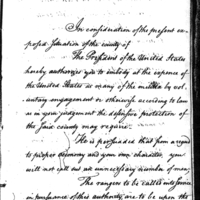 In consideration of the present ex-
posed situation of the county of
The President of the United States
hereby authorizes you to embody at the expence of
the United States as many of the militia by vol-
untary engagement or otherwise according to law
as in your judgement the defensive protection of
the said county may require.
He is persuaded that from a regard
to proper oeconomy and your own character, you
will not call out an unnecessary number of men.
The rangers to be called into service
in pursuance of this authority are to be upon the